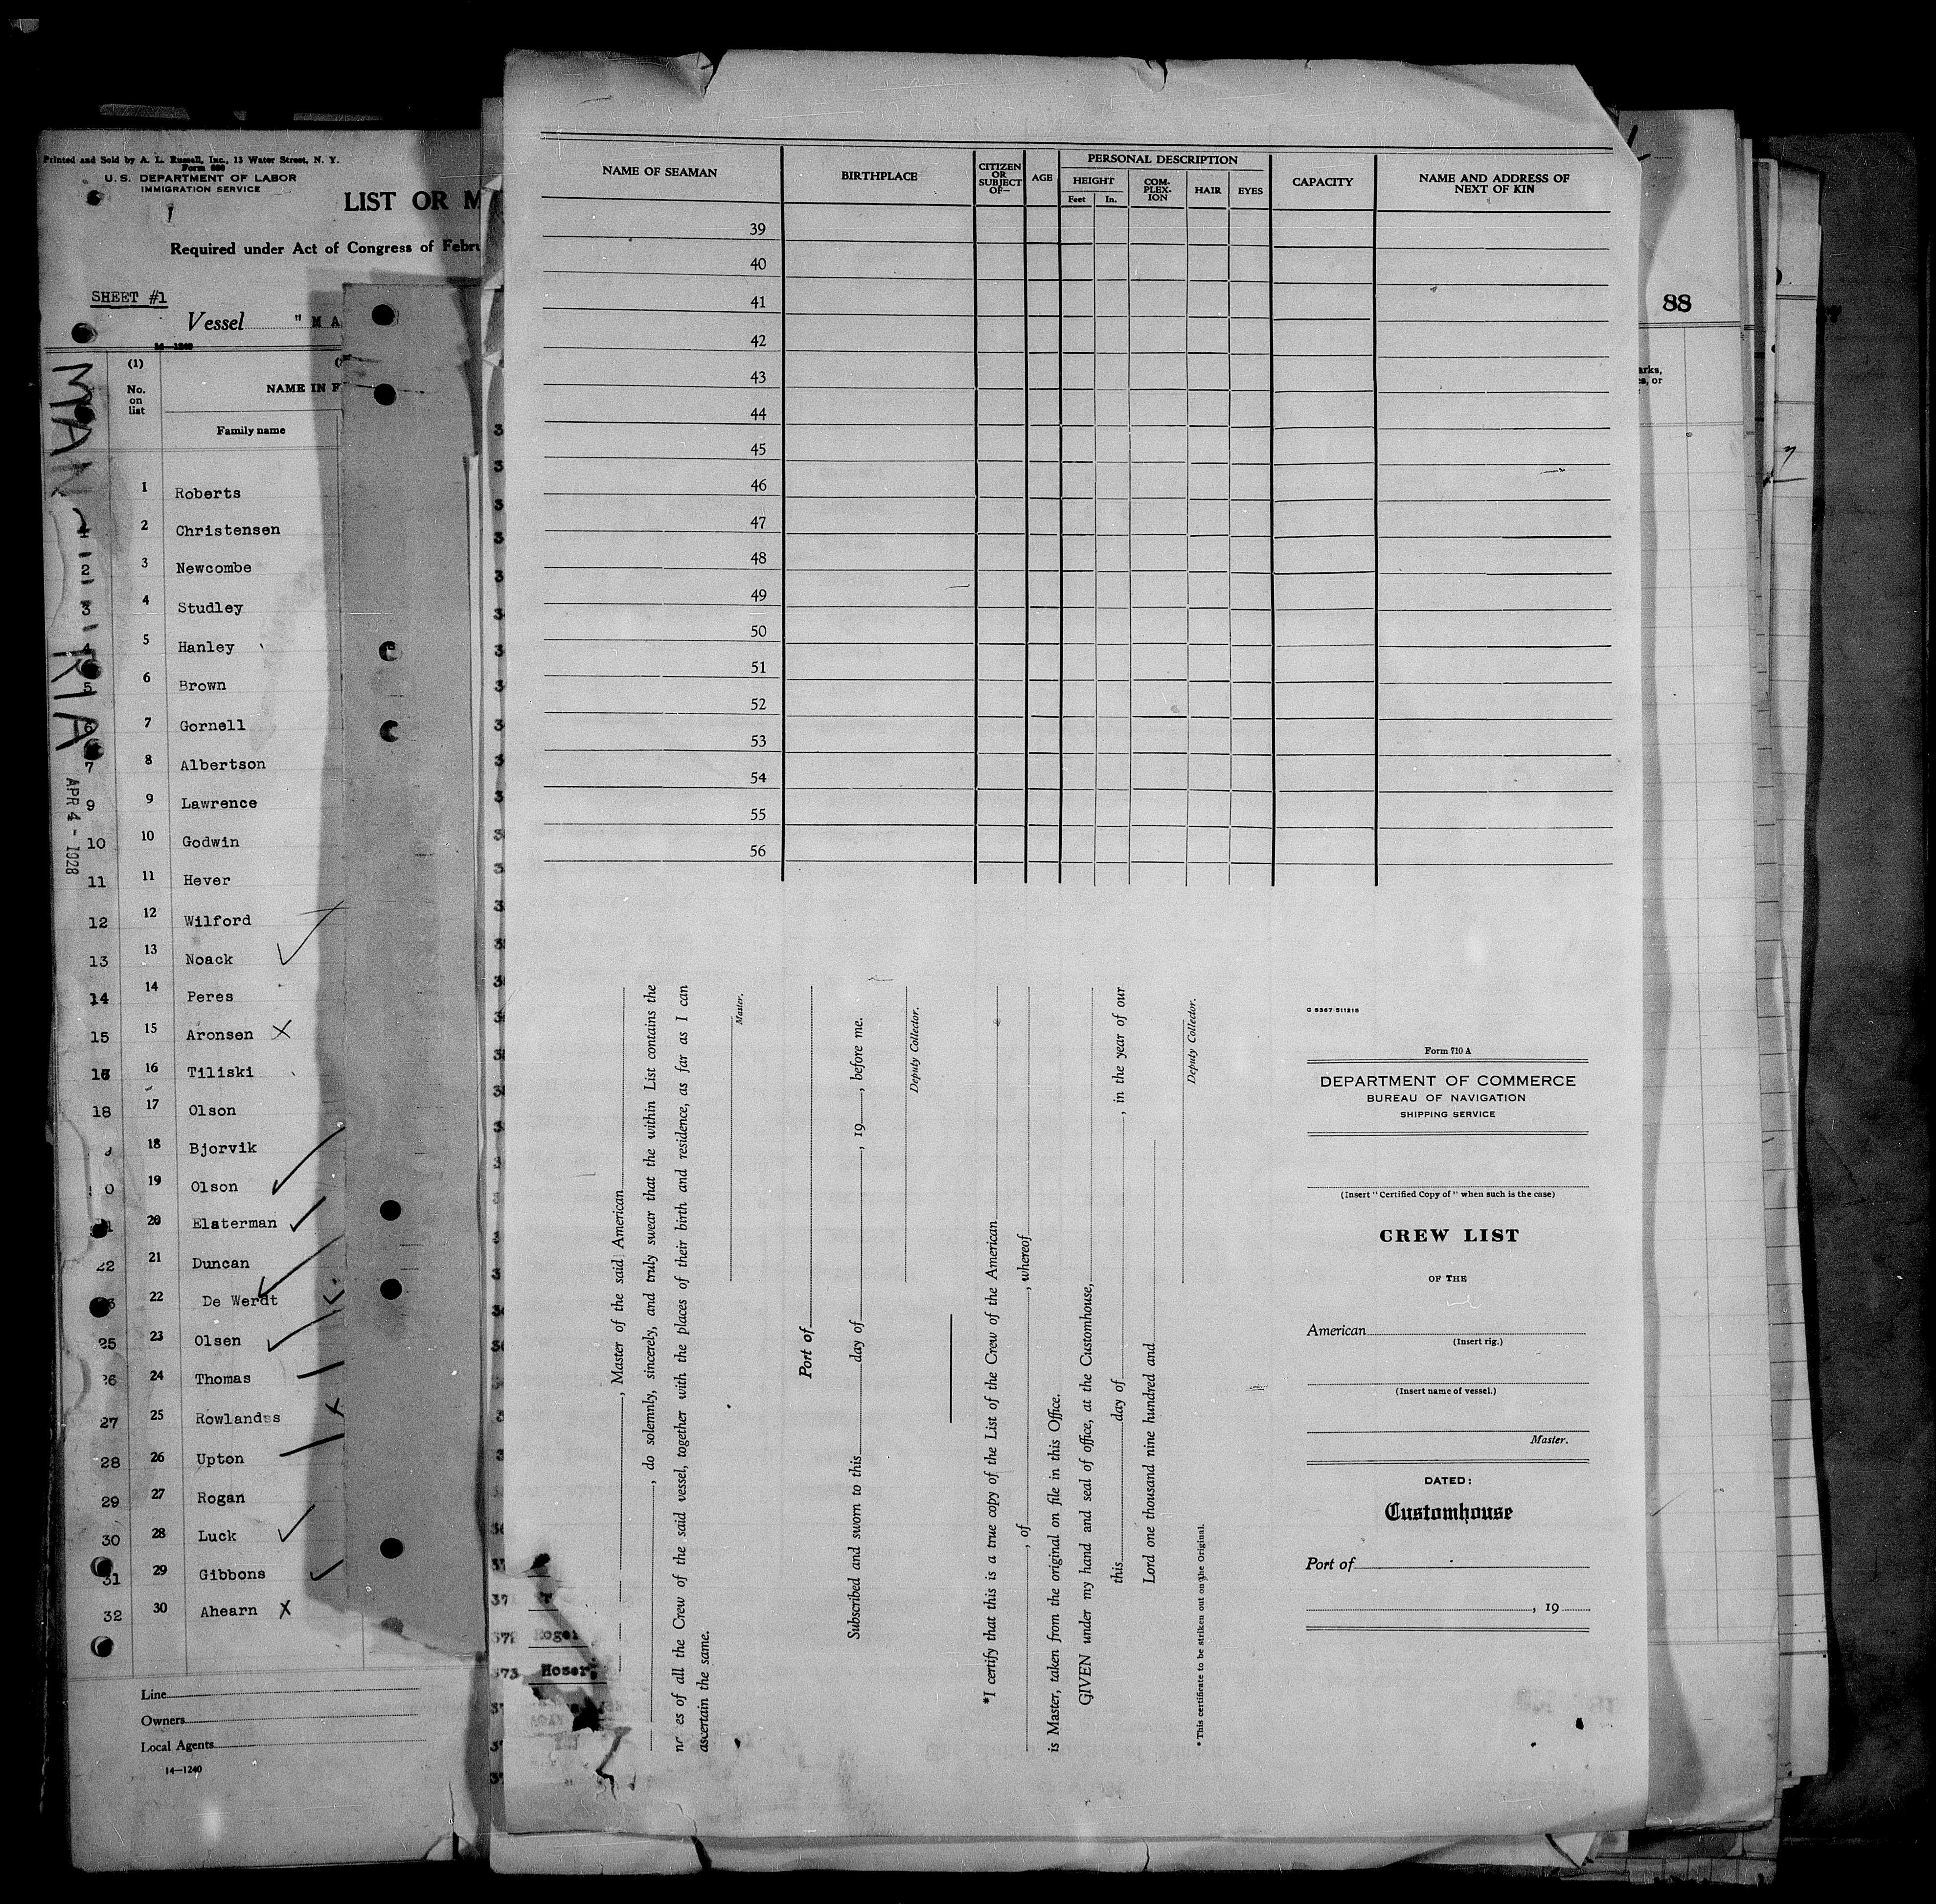 Printed and Sold by A. L. Russell, Inc., 13 Water Street, N. Y.
Form 689
U. S. DEPARTMENT OF LABOR
IMMIGRATION SERVICE
LIST OR M
Required under Act of Congress of Febru
SHEET #1
Vessel "M A
14—1240
(1)
No. on list
NAME IN F
Family name
MAN RIA
APR 4 - 1928
1 Roberts
2 Christensen
3 Newcombe
4 Studley
5 Hanley
6 Brown
7 Gornell
8 Albertson
9 9 Lawrence
10 10 Godwin
11 11 Hever
12 12 Wilford
13 13 Noack
14 14 Peres
15 15 Aronsen X
16 16 Tiliski
18 17 Olson
18 Bjorvik
19 Olson
20 Elsterman
22 21 Duncan
22 De Werdt
25 23 Olsen
26 24 Thomas
27 25 Rowlands
28 26 Upton
29 27 Rogan
30 28 Luck
31 29 Gibbons
32 30 Ahearn X
Line
Owners
Local Agents
14—1240
NAME OF SEAMAN
BIRTHPLACE
CITIZEN OR SUBJECT OF—
AGE
PERSONAL DESCRIPTION
HEIGHT
Feet In.
COM-PLEX-ION
HAIR
EYES
CAPACITY
NAME AND ADDRESS OF NEXT OF KIN
39
40
41
42
43
44
45
46
47
48
49
50
51
52
53
54
55
56
88
arks,
es, or
Roger
Moser
, Master of the said American
, do solemnly, sincerely, and truly swear that the within List contains the
n es of all the Crew of the said vessel, together with the places of their birth and residence, as far as I can
ascertain the same.
Master.
Port of
Subscribed and sworn to this day of , 19 , before me.
Deputy Collector.
*I certify that this is a true copy of the List of the Crew of the American
, of , whereof
is Master, taken from the original on file in this Office.
GIVEN under my hand and seal of office, at the Customhouse,
this day of , in the year of our
Lord one thousand nine hundred and
Deputy Collector.
* This certificate to be striken out on the Original.
G 8367 511215
Form 710 A
DEPARTMENT OF COMMERCE
BUREAU OF NAVIGATION
SHIPPING SERVICE
(Insert "Certified Copy of" when such is the case)
CREW LIST
OF THE
American
(Insert rig.)
(Insert name of vessel.)
Master.
DATED:
Customhouse
Port of
, 19